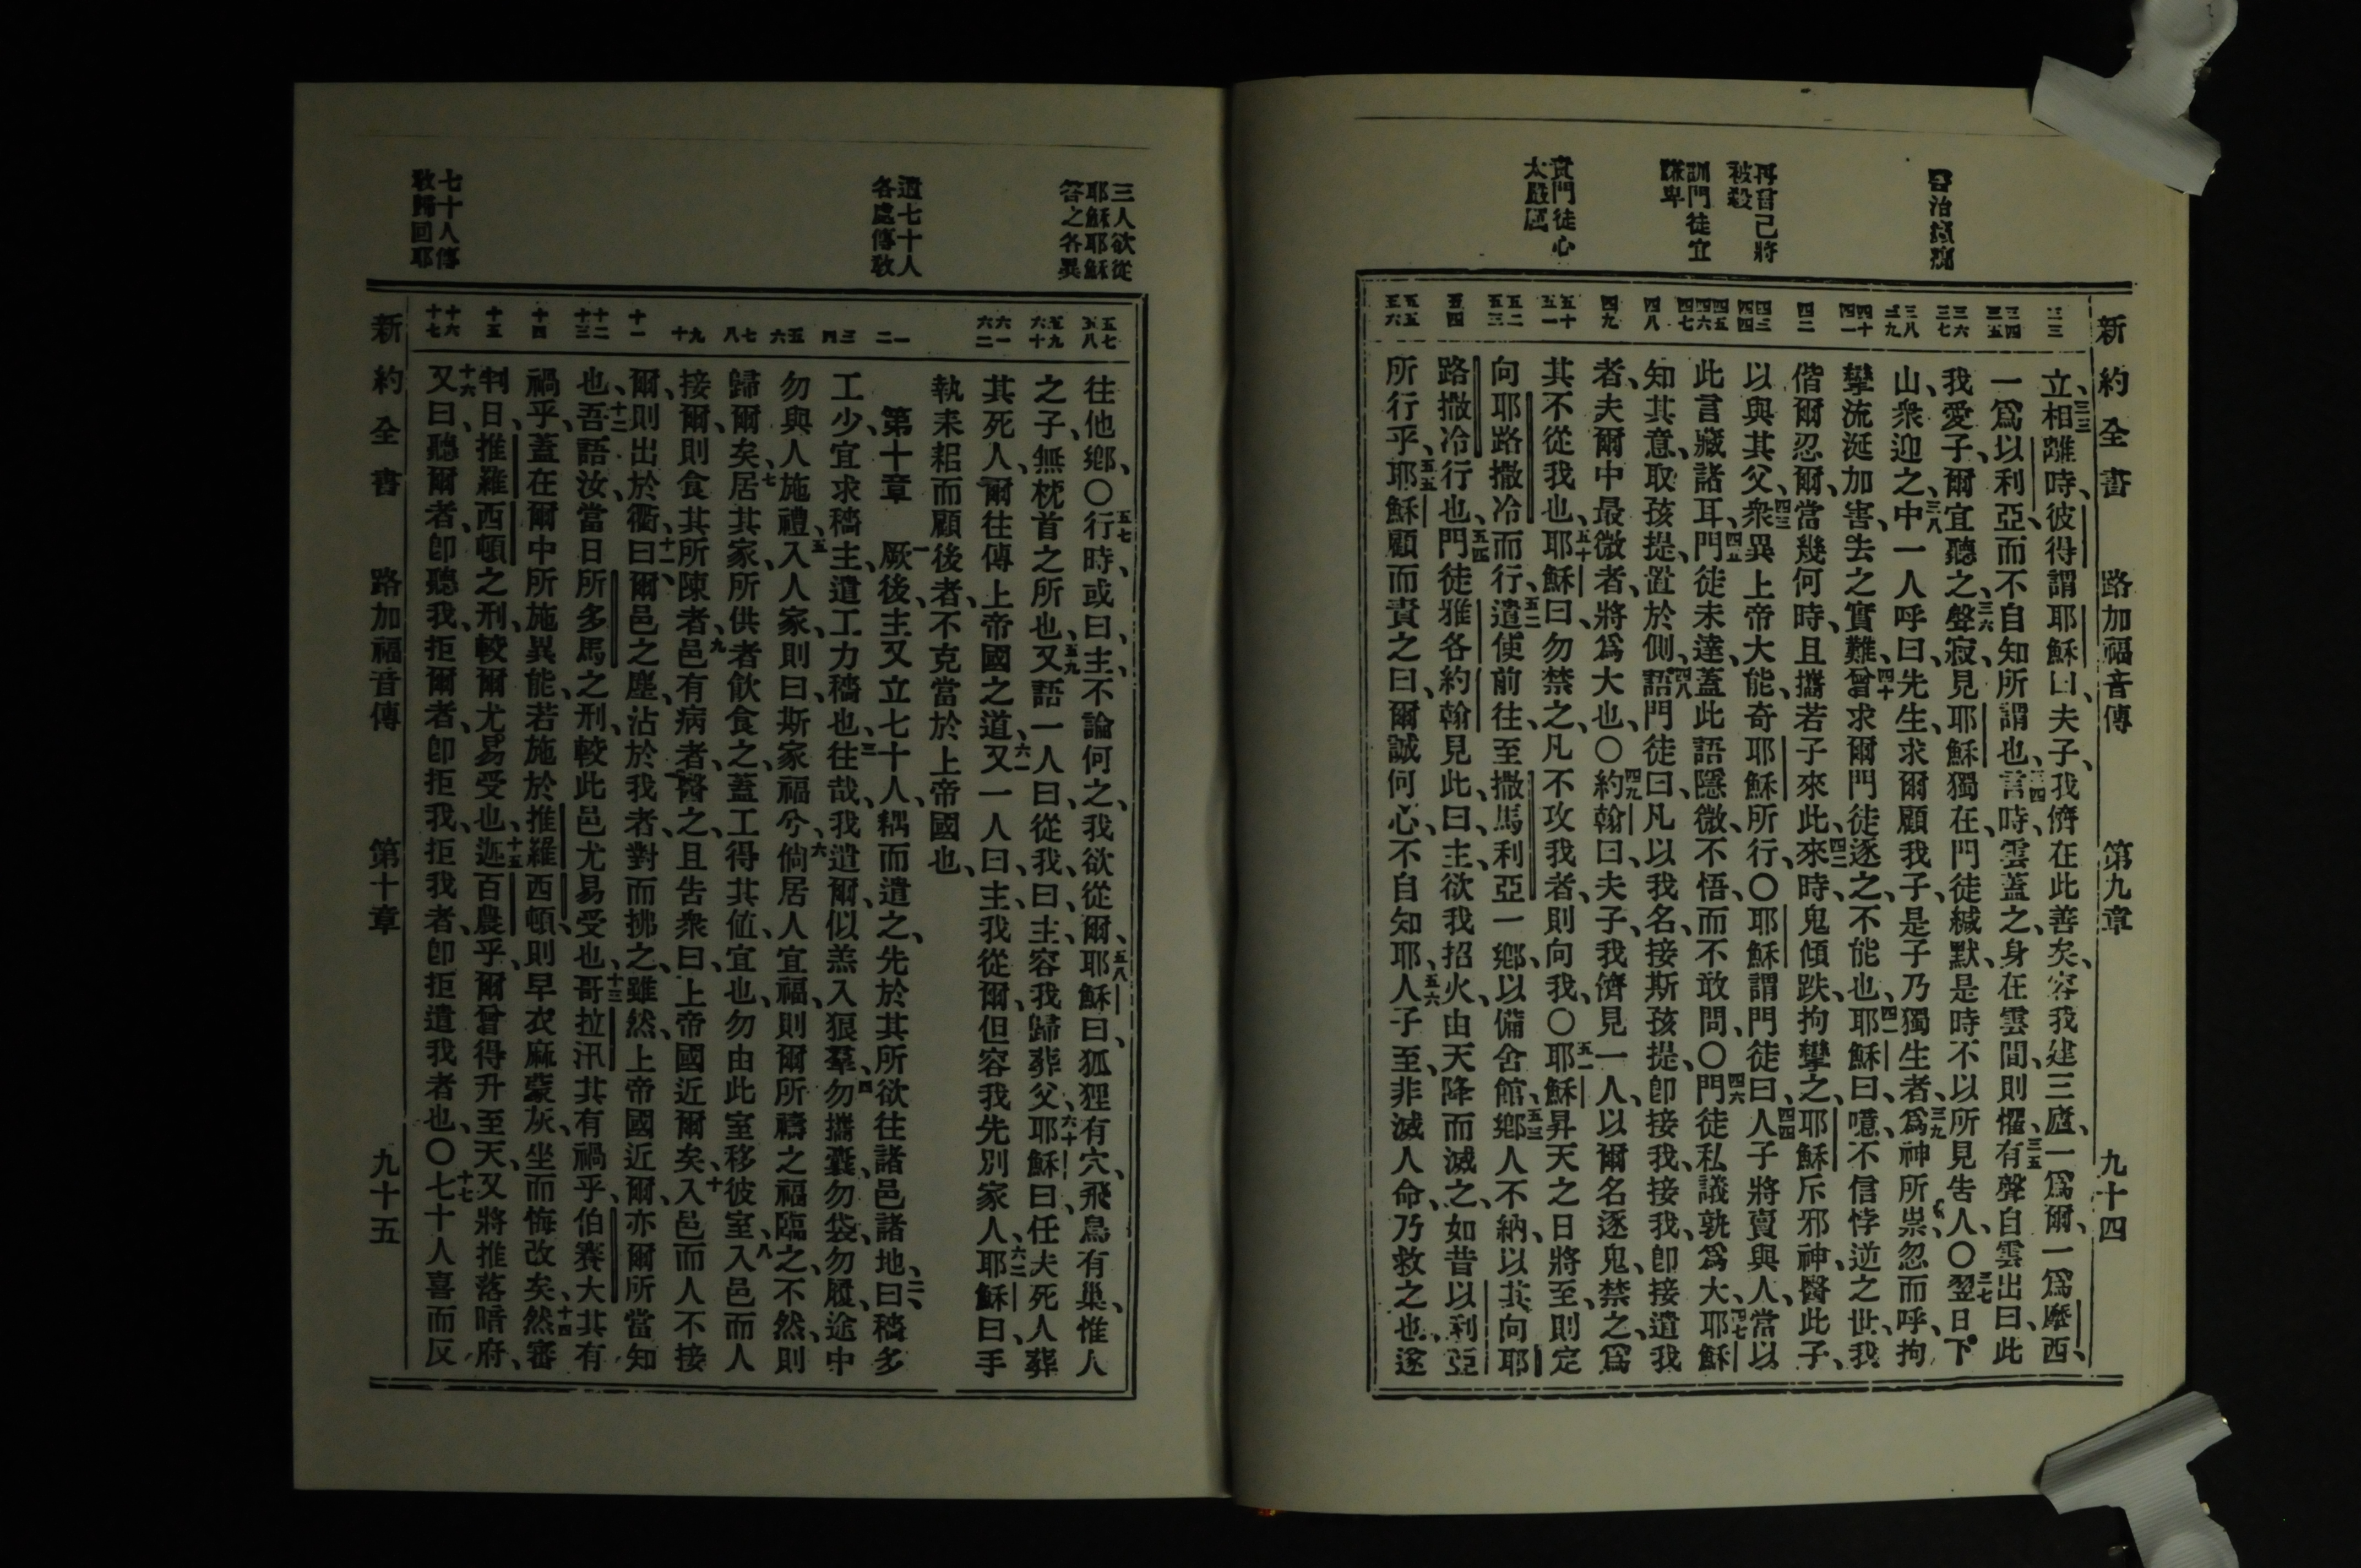 新約全書 路加福音傳 第九章 九十四
治癲癇
再言己將
被殺
訓門徒宜
謙卑
責門徒心
太嚴厲
三三
三四 三五
三六 三七
三八 三九
四十 四一
四二
四三 四四
四五 四六 四七
四八
四九
五十 五一
五二 五三
五四
五五 五六
立、三三相離時、彼得謂耶穌曰、夫子、我儕在此善矣、容我建三廬、一爲爾、一爲摩西、
一爲以利亞、而不自知所謂也、三四言時、雲蓋之、身在雲間、則懼、三五有聲自雲出曰、此
我愛子、爾宜聽之、三六聲寂、見耶穌獨在、門徒緘默、是時不以所見吿人、〇三七翌日、下
山、衆迎之、三八中一人呼曰、先生、求爾顧我子、是子乃獨生者、三九爲神所祟、忽而呼、拘
攣流涎加害、去之實難、四十曾求爾門徒逐之、不能也、四一耶穌曰、噫、不信悖逆之世、我
偕爾忍爾、當幾何時、且攜若子來此、四二來時、鬼傾跌、拘攣之、耶穌斥邪神、醫此子、
以與其父、四三衆異上帝大能、奇耶穌所行、〇耶穌謂門徒曰、四四人子將賣與人、當以
此言藏諸耳、四五門徒未達、蓋此語隱微、不悟、而不敢問、〇四六門徒私議孰爲大、四七耶穌
知其意、取孩提、置於側、四八語門徒曰、凡以我名、接斯孩提、卽接我、接我、卽接遣我
者、夫爾中最微者、將爲大也、〇四九約翰曰、夫子、我儕見一人、以爾名逐鬼、禁之、爲
其不從我也、五十耶穌曰、勿禁之、凡不攻我者、則向我、〇五一耶穌昇天之日將至、則定
向耶路撒冷而行、五二遣使前往、至撒馬利亞一鄉、以備舍館、五三鄉人不納、以其向耶
路撒冷行也、五四門徒雅各約翰見此、曰、主、欲我招火、由天降而滅之、如昔以利亞
所行乎、五五耶穌顧而責之曰、爾誠何心、不自知耶、五六人子至、非滅人命、乃救之也、遂
三人欲從
耶穌耶穌
答之各異
遣七十人
各處傳敎
七十人傳
敎歸回耶
五七 五八
五九 六十
六一 六二
一 二
三 四
五 六
七 八
九 十
十一
十二 十三
十四
十五
十六 十七
往他鄉、〇五七行時、或曰、主、不論何之、我欲從爾、五八耶穌曰、狐狸有穴、飛鳥有巢、惟人
之子、無枕首之所也、五九又語一人曰、從我、曰、主、容我歸葬父、六十耶穌曰、任夫死人葬
其死人、爾往傳上帝國之道、六一又一人曰、主、我從爾、但容我先別家人、六二耶穌曰、手
執耒耜而顧後者、不克當於上帝國也、
第十章 一厥後、主又立七十人、耦而遣之、先於其所欲往諸邑諸地、二曰、穡多
工少、宜求穡主、遣工力穡也、三往哉、我遣爾、似羔入狼羣、四勿攜囊、勿袋、勿履、途中
勿與人施禮、五入人家、則曰、斯家福兮、六倘居人宜福、則爾所禱之福臨之、不然、則
歸爾矣、七居其家、所供者飮食之、蓋工得其値、宜也、勿由此室移彼室、八入邑而人
接爾、則食其所陳者、九邑有病者、醫之、且吿衆曰、上帝國近爾矣、十入邑而人不接
爾、則出於衢、曰、十一爾邑之塵、沾於我者、對而拂之、雖然、上帝國近爾、亦爾所當知
也、十二吾語汝、當日所多馬之刑、較此邑尤易受也、十三哥拉汛其有禍乎、伯賽大其有
禍乎、蓋在爾中所施異能、若施於推羅西頓、則早衣麻蒙灰、坐而悔改矣、十四然審
判日、推羅西頓之刑、較爾尤易受也、十五迦百農乎、爾曾得升至天、又將推落暗府、
十六又曰、聽爾者、卽聽我、拒爾者、卽拒我、拒我者、卽拒遣我者也、〇十七七十人喜而反
新約全書 路加福音傳 第十章 九十五